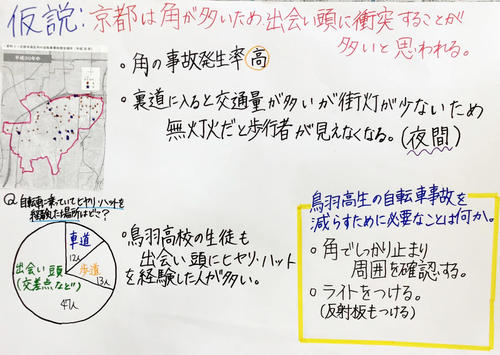 仮説:京都は角が多いため、出会い頭に衝突することが
多いと思われる。
平成30年中
・角の事故発生率高
・裏道に入ると交通量が多いが街灯が少ないため
無灯火だと歩行者が見えなくなる。(夜間)
Q.自転車に乗っていてヒヤリ・ハットを
経験した場所はどこ?
車道
12人
歩道
13人
出会い頭
(交差点など)
47人
・鳥羽高校の生徒も
出会い頭にヒヤリ・ハット
を経験した人が多い。
鳥羽高生の自転車事故を
減らすために必要なことは何か。
・角でしっかり止まり
周囲を確認する。
・ライトをつける。
(反射板もつける)